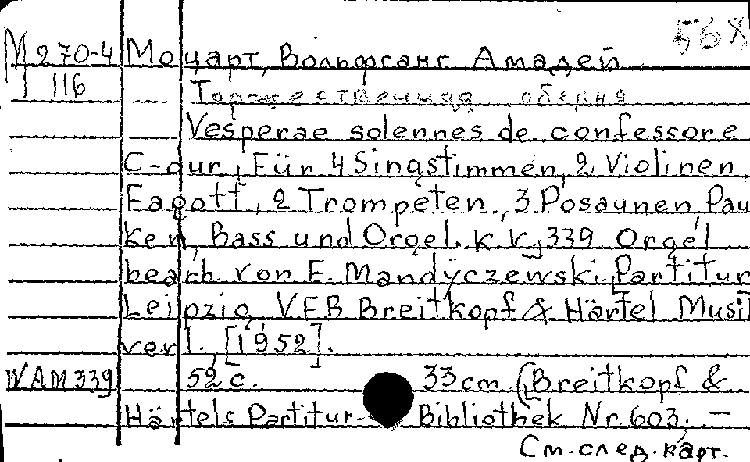 568
М 270-4 Моцарт, Вольфганг Амадей
116 Торжественная обедня
Vesperae solennes de confessore
C-dur, Für 4 Singstimmen, 2 Violinen,
Fagott, 2 Trompeten, 3 Posaunen, Pau
ken, Bass und Orgel. K.V. 339 Orgel
bearb. von E. Mandyczewski. Partitur
Leipzig, VEB Breitkopf & Härtel Musik
verl. [1952].
WAM 339 52 c. 33 cm (Breitkopf &
Härtels Partitur- Bibliothek Nr. 603. –
См. след. карт.